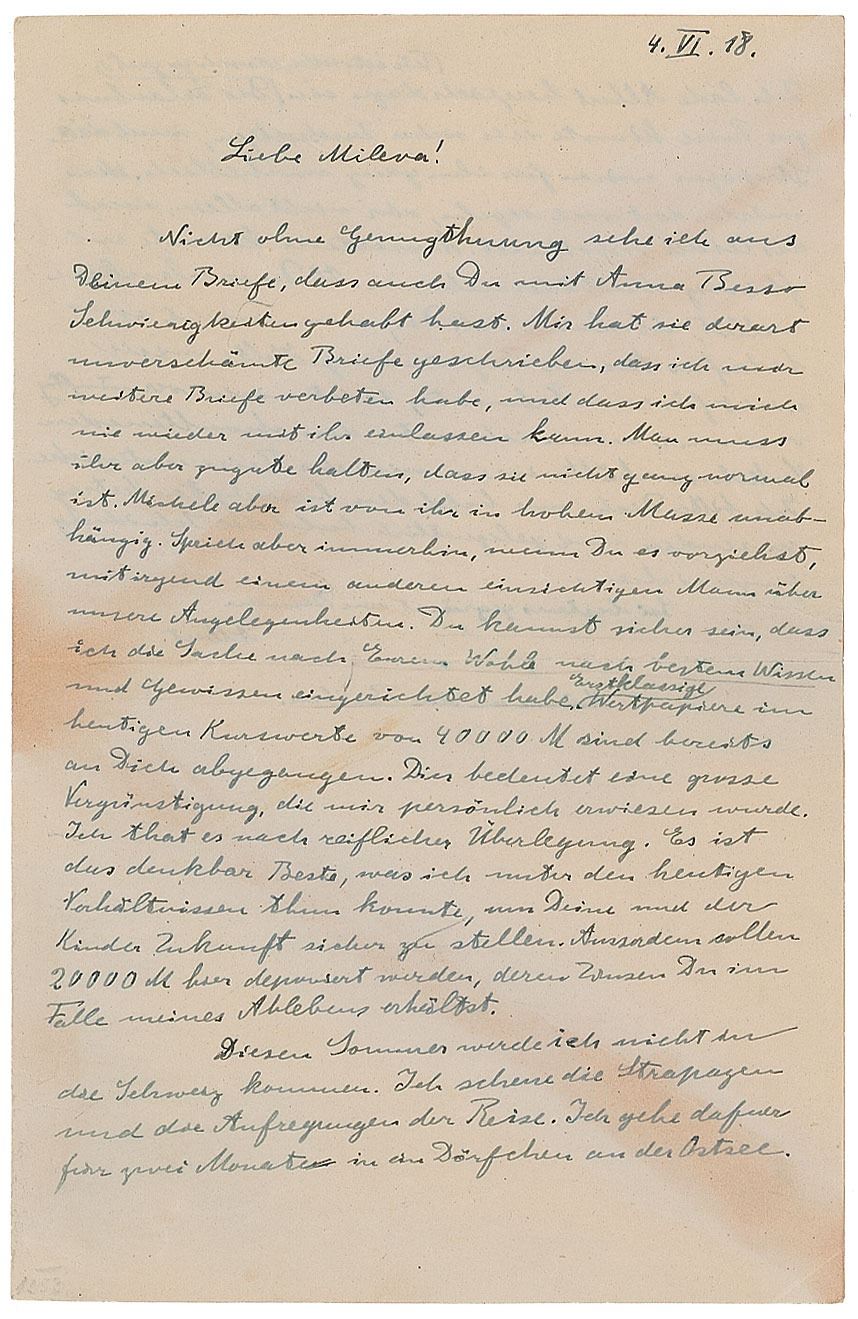 4. VI. 18.
Liebe Mileva!
Nicht ohne Genugthuung sehe ich aus
Deinem Briefe, dass auch Du mit Anna Besso
Schwierigkeiten gehabt hast. Mir hat sie derart
unverschämte Briefe geschrieben, dass ich mir
weitere Briefe verbeten habe, und dass ich mich
nie wieder mit ihr einlassen kann. Man muss
ihr aber zugute halten, dass sie nicht ganz normal
ist. Michele aber ist von ihr in hohem Masse unab-
hängig. Sprich aber immerhin, wenn Du es vorziehst,
mit irgend einem anderen einsichtigen Mann über
unsere Angelegenheiten. Du kannst sicher sein, dass
ich die Sache nach Eurem Wohle nach bestem Wissen
und Gewissen eingerichtet habe. Erstklassige Wertpapiere im
heutigen Kurswerte von 40000 M sind bereits
an Dich abgegangen. Dies bedeutet eine grosse
Vergünstigung, die mir persönlich erwiesen wurde.
Ich that es nach reiflicher Überlegung. Es ist
das denkbar Beste, was ich unter den heutigen
Verhältnissen thun konnte, um Deine und der
Kinder Zukunft sicher zu stellen. Ausserdem sollen
20000 M hier deponiert werden, deren Zinsen Du im
Falle meines Ablebens erhältst.
Diesen Sommer werde ich nicht in
die Schweiz kommen. Ich scheue die Strapazen
und die Aufregungen der Reise. Ich gehe dafuer
fuer zwei Monate in ein Dörfchen an der Ostsee.